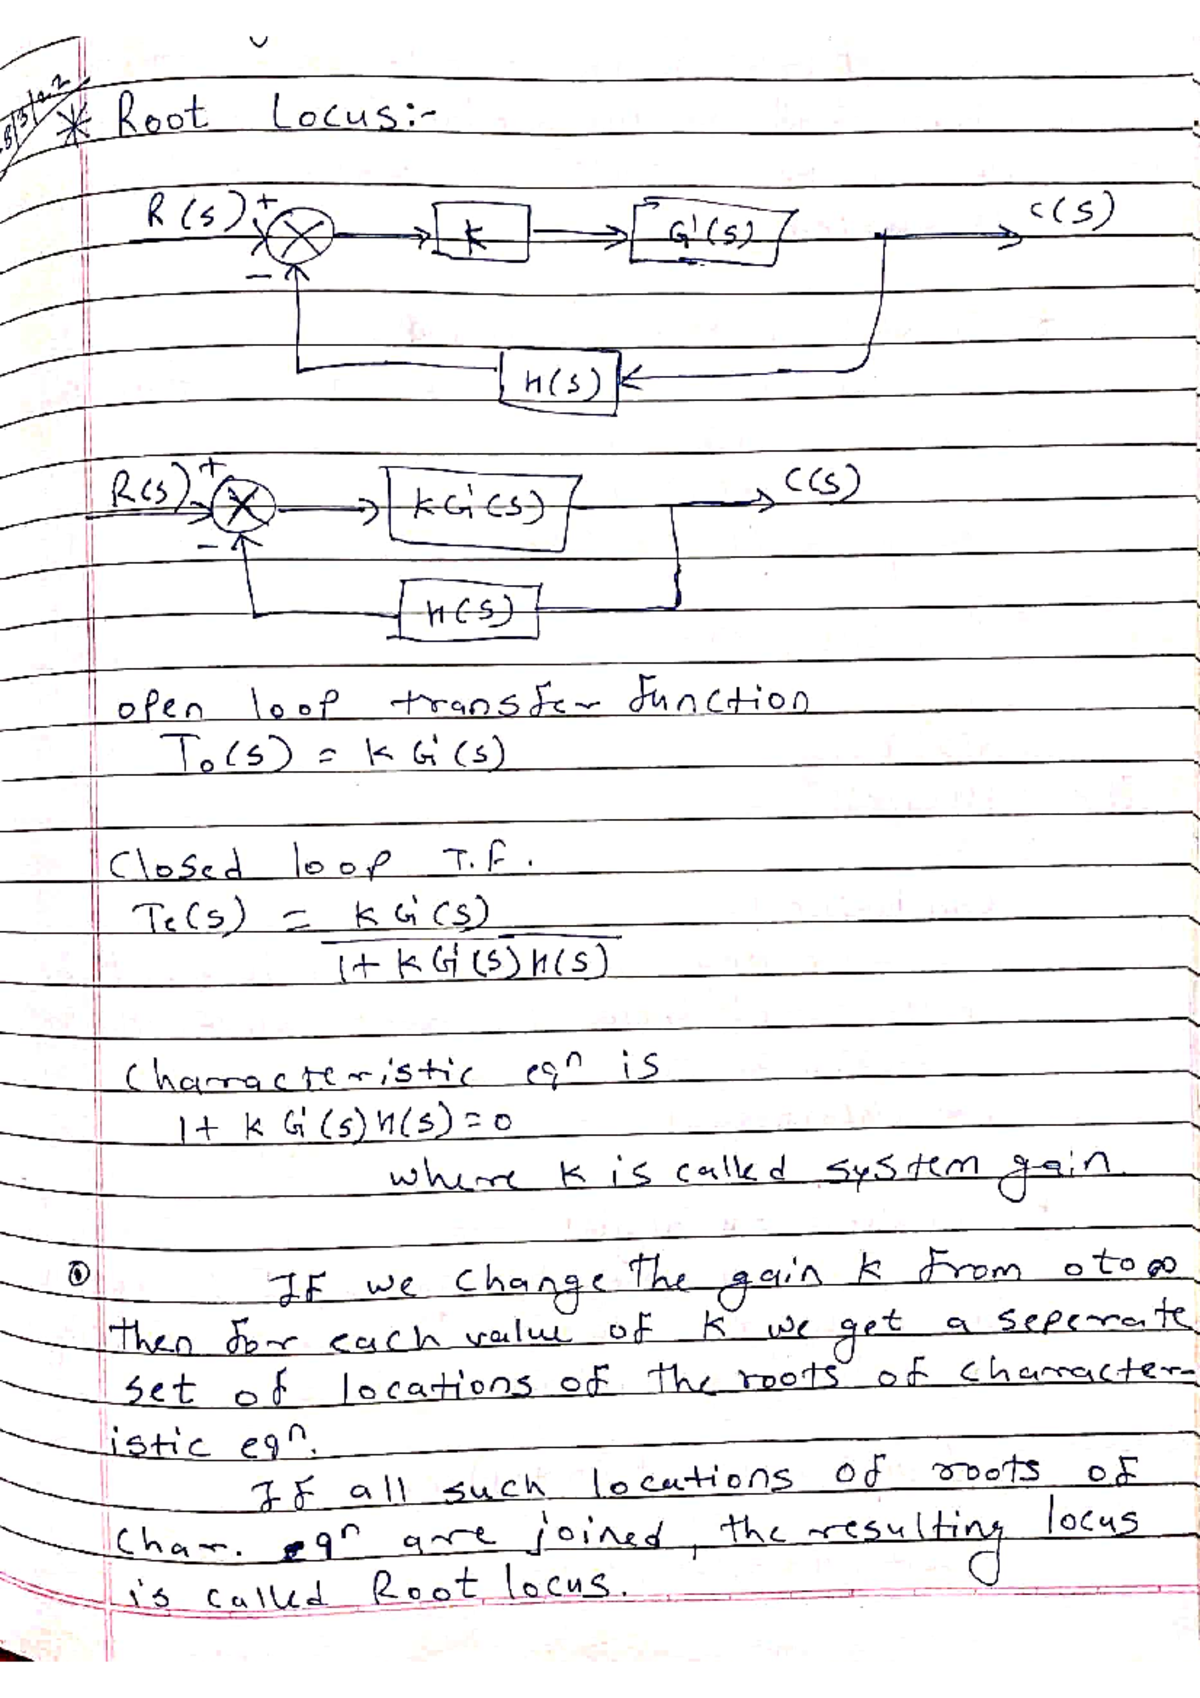 * Root Locus:-
R(s) + K G'(s) C(s)
-
H(s)
R(s) + KG'(s) C(s)
-
H(s)
open loop transfer function
To(s) = K G'(s)
Closed loop T.F.
Tc(s) = K G'(s)
1+ K G'(s) H(s)
Characteristic eqn is
1+ K G'(s) H(s) = 0
where K is called system gain.
If we change the gain K from 0 to ∞
then for each value of K we get a seperate
set of locations of the roots of character-
istic eqn.
If all such locations of roots of
char. eqn are joined, the resulting locus
is called Root locus.